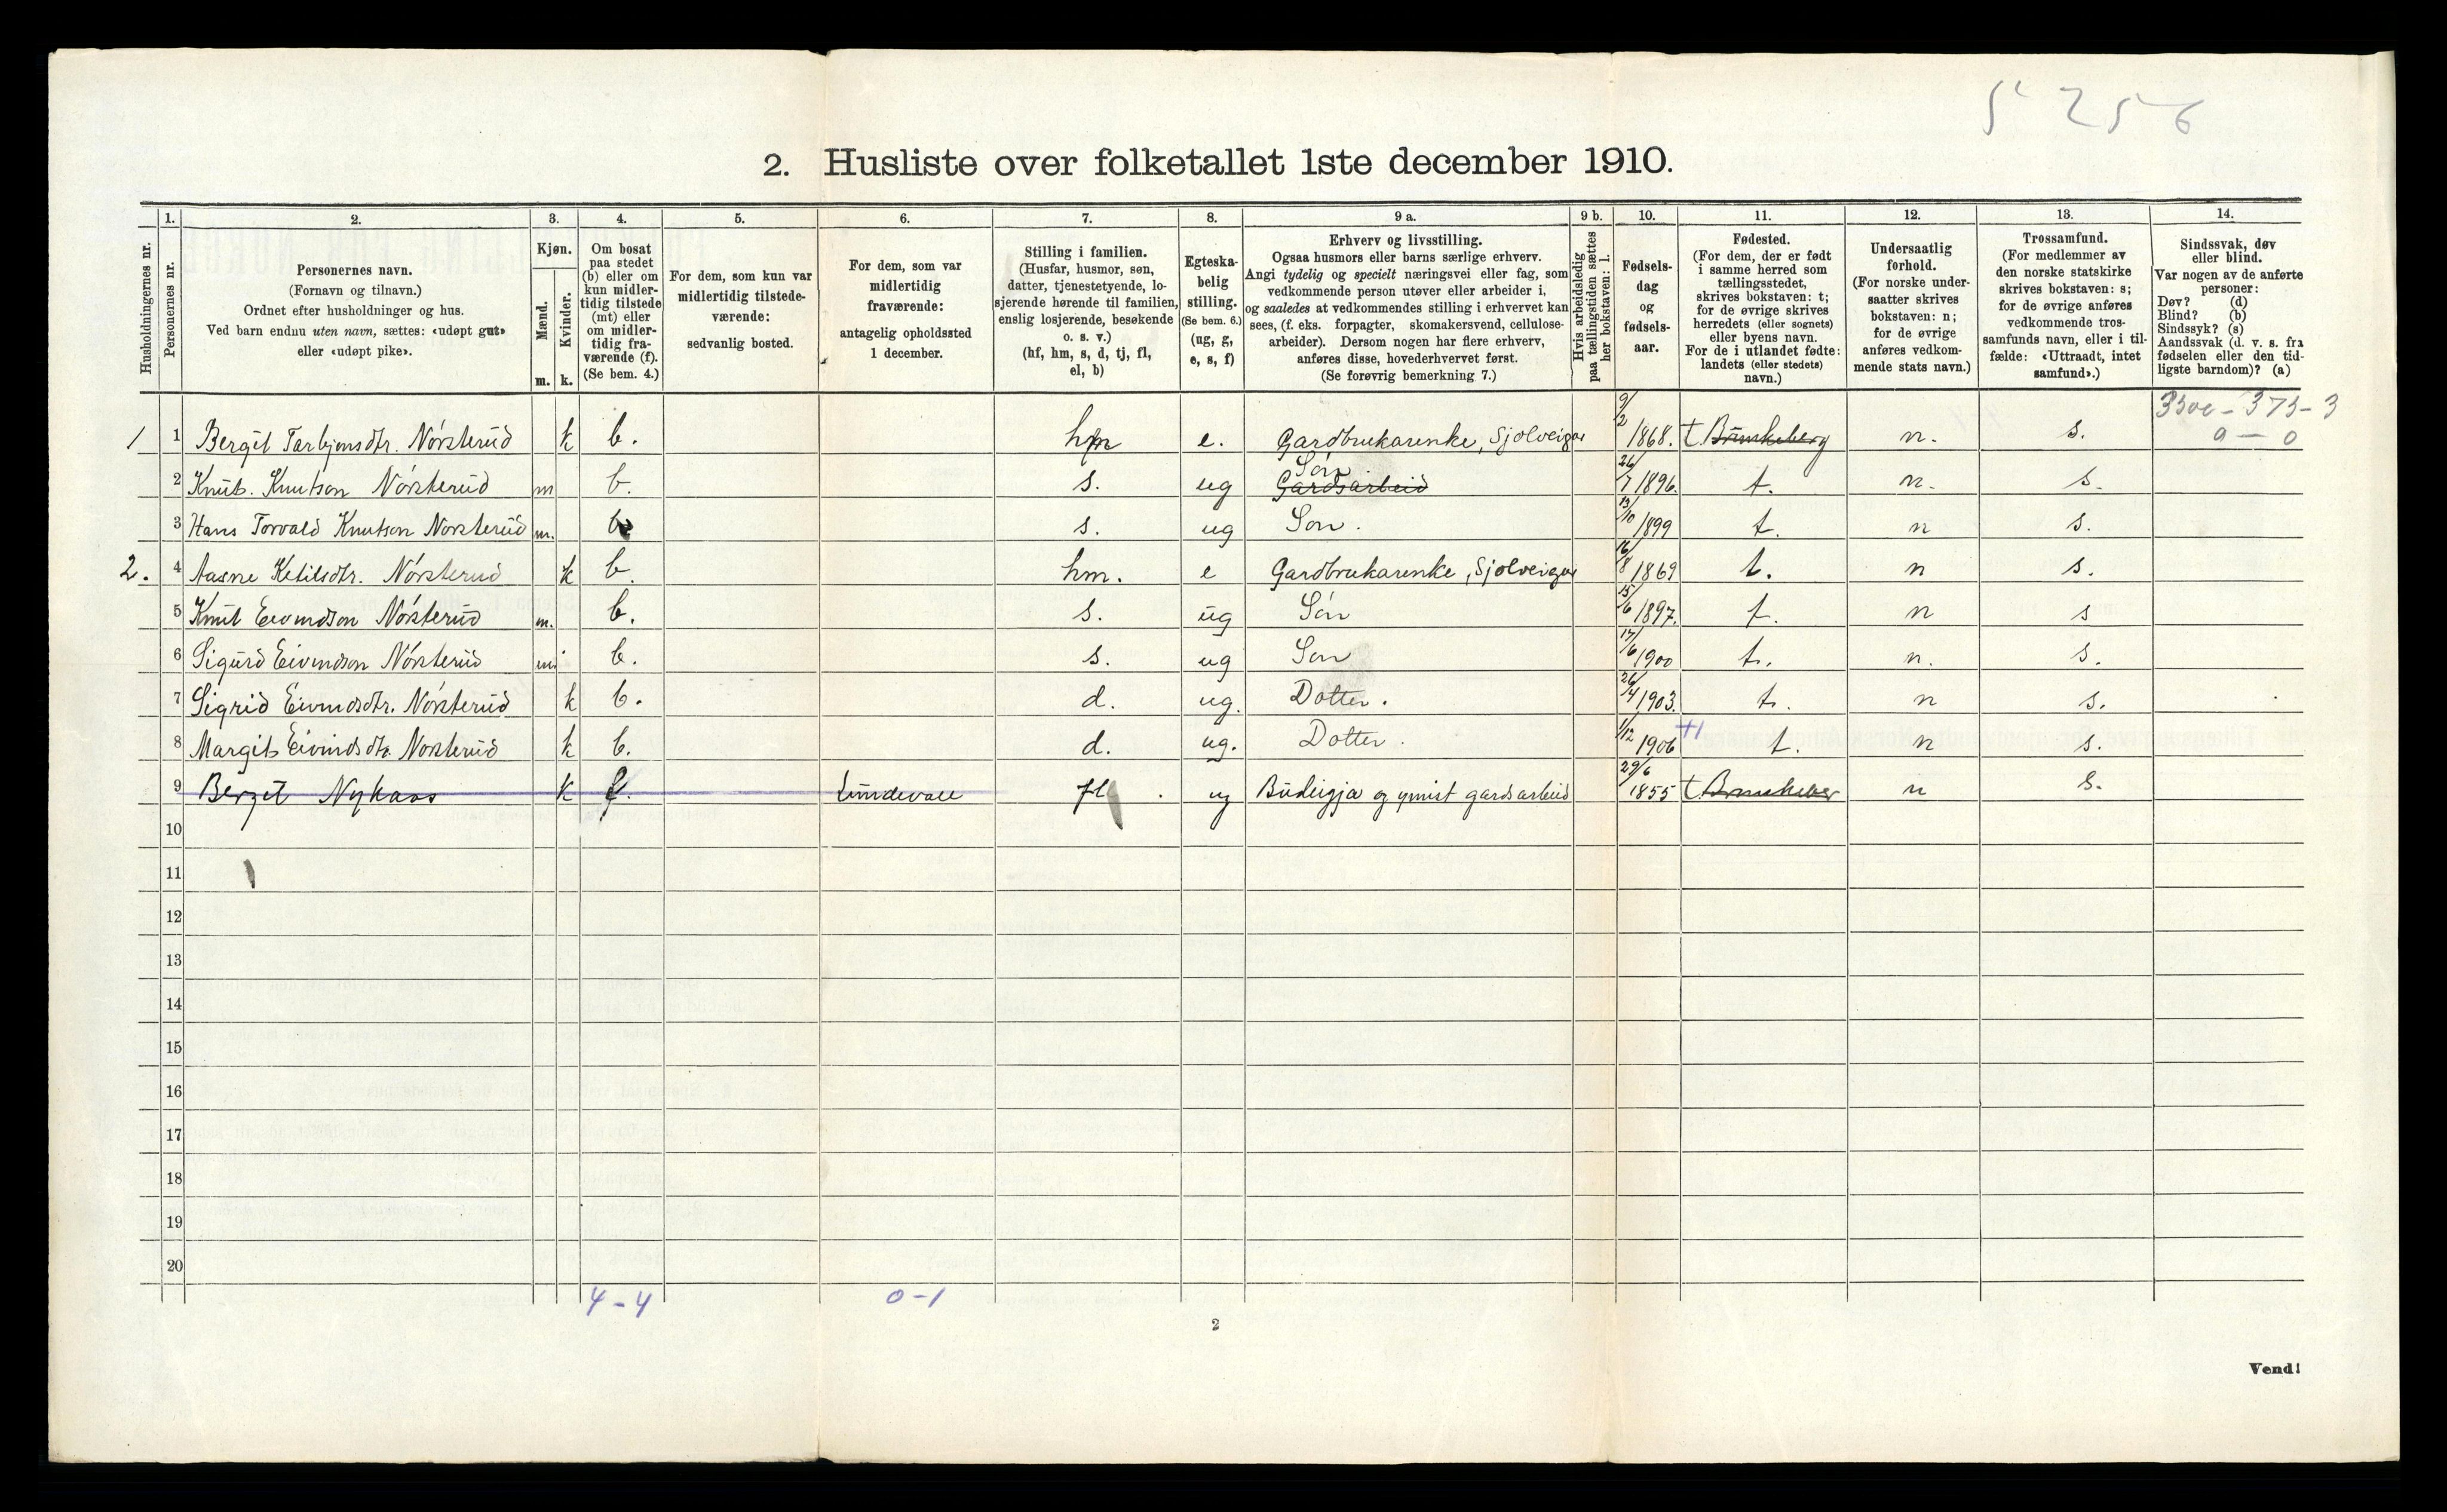 5 2 5 6
2. Husliste over folketallet 1ste december 1910.
Husholdningernes nr.
1.
Personernes nr.
2.
Personernes navn.
(Fornavn og tilnavn.)
Ordnet efter husholdninger og hus.
Ved barn endnu uten navn, sættes: «udøpt gut»
eller «udøpt pike».
3.
Kjøn.
Mænd.
Kvinder.
m. k.
4.
Om bosat
paa stedet
(b) eller om
kun midler-
tidig tilstede
(mt) eller
om midler-
tidig fra-
værende (f).
(Se bem. 4.)
5.
For dem, som kun var
midlertidig tilstede-
værende:
sedvanlig bosted.
6.
For dem, som var
midlertidig
fraværende:
antagelig opholdssted
1 december.
7.
Stilling i familien.
(Husfar, husmor, søn,
datter, tjenestetyende, lo-
sjerende hørende til familien,
enslig losjerende, besøkende
o. s. v.)
(hf, hm, s, d, tj, fl,
el, b)
8.
Egteska-
belig
stilling.
(Se bem. 6.)
(ug, g,
e, s, f)
9 a.
Erhverv og livsstilling.
Ogsaa husmors eller barns særlige erhverv.
Angi tydelig og specielt næringsvei eller fag, som
vedkommende person utøver eller arbeider i,
og saaledes at vedkommendes stilling i erhvervet kan
sees, (f. eks. forpagter, skomakersvend, cellulose-
arbeider). Dersom nogen har flere erhverv,
anføres disse, hovederhvervet først.
(Se forøvrig bemerkning 7.)
9 b.
Hvis arbeidsledig
paa tællingstiden sættes
her bokstaven: l.
10.
Fødsels-
dag
og
fødsels-
aar.
11.
Fødested.
(For dem, der er født
i samme herred som
tællingsstedet,
skrives bokstaven: t;
for de øvrige skrives
herredets (eller sognets)
eller byens navn.
For de i utlandet fødte:
landets (eller stedets)
navn.)
12.
Undersaatlig
forhold.
(For norske under-
saatter skrives
bokstaven: n;
for de øvrige
anføres vedkom-
mende stats navn.)
13.
Trossamfund.
(For medlemmer av
den norske statskirke
skrives bokstaven: s;
for de øvrige anføres
vedkommende tros-
samfunds navn, eller i til-
fælde: «Uttraadt, intet
samfund».)
14.
Sindssvak, døv
eller blind.
Var nogen av de anførte
personer:
Døv? (d)
Blind? (b)
Sindssyk? (s)
Aandssvak (d. v. s. fra
fødselen eller den tid-
ligste barndom)? (a)
1 1 Bergit Tarbjønsdtr. Nörsterud k b. hm e. Gardbrukarenke, Sjølveigar 9/2 1868. t. Brunkeberg n. s. 0 — 0
2 Knut. Knutson Nörsterud m b. s. ug Gardsarbeid Són 26/7 1896. t. n. s.
3 Hans Torvald Knutson Norsterud m. b s. ug Son. 13/10 1899 t. n s.
2. 4 Aasne Ketilsdtr. Nörsterud k b. hm. e Gardbrukarenke, Sjølveigar 16/8 1869 t. n s.
5 Knut Eivindson Nörsterud m. b. s. ug Són 15/6 1897. t. n s
6 Sigurd Eivindson Nörsterud m. b. s. ug Son 17/6 1900 t. n. s.
7 Sigrid Eivindsdtr. Nórsterud k b. d. ug. Dotter. 26/4 1903. t. n s.
8 Margit Eivindsdtr. Norsterud k b. d. ug. Dotter. 1/12 1906 t. n s.
9 Bergit Nykaas k f. Lundevall fl ug Budeigja og ymist gardsarbeid 29/6 1855 t. Brunkeber n s.
10
11
12
13
14
15
16
17
18
19
20
4 - 4 0 - 1
2
Vend!